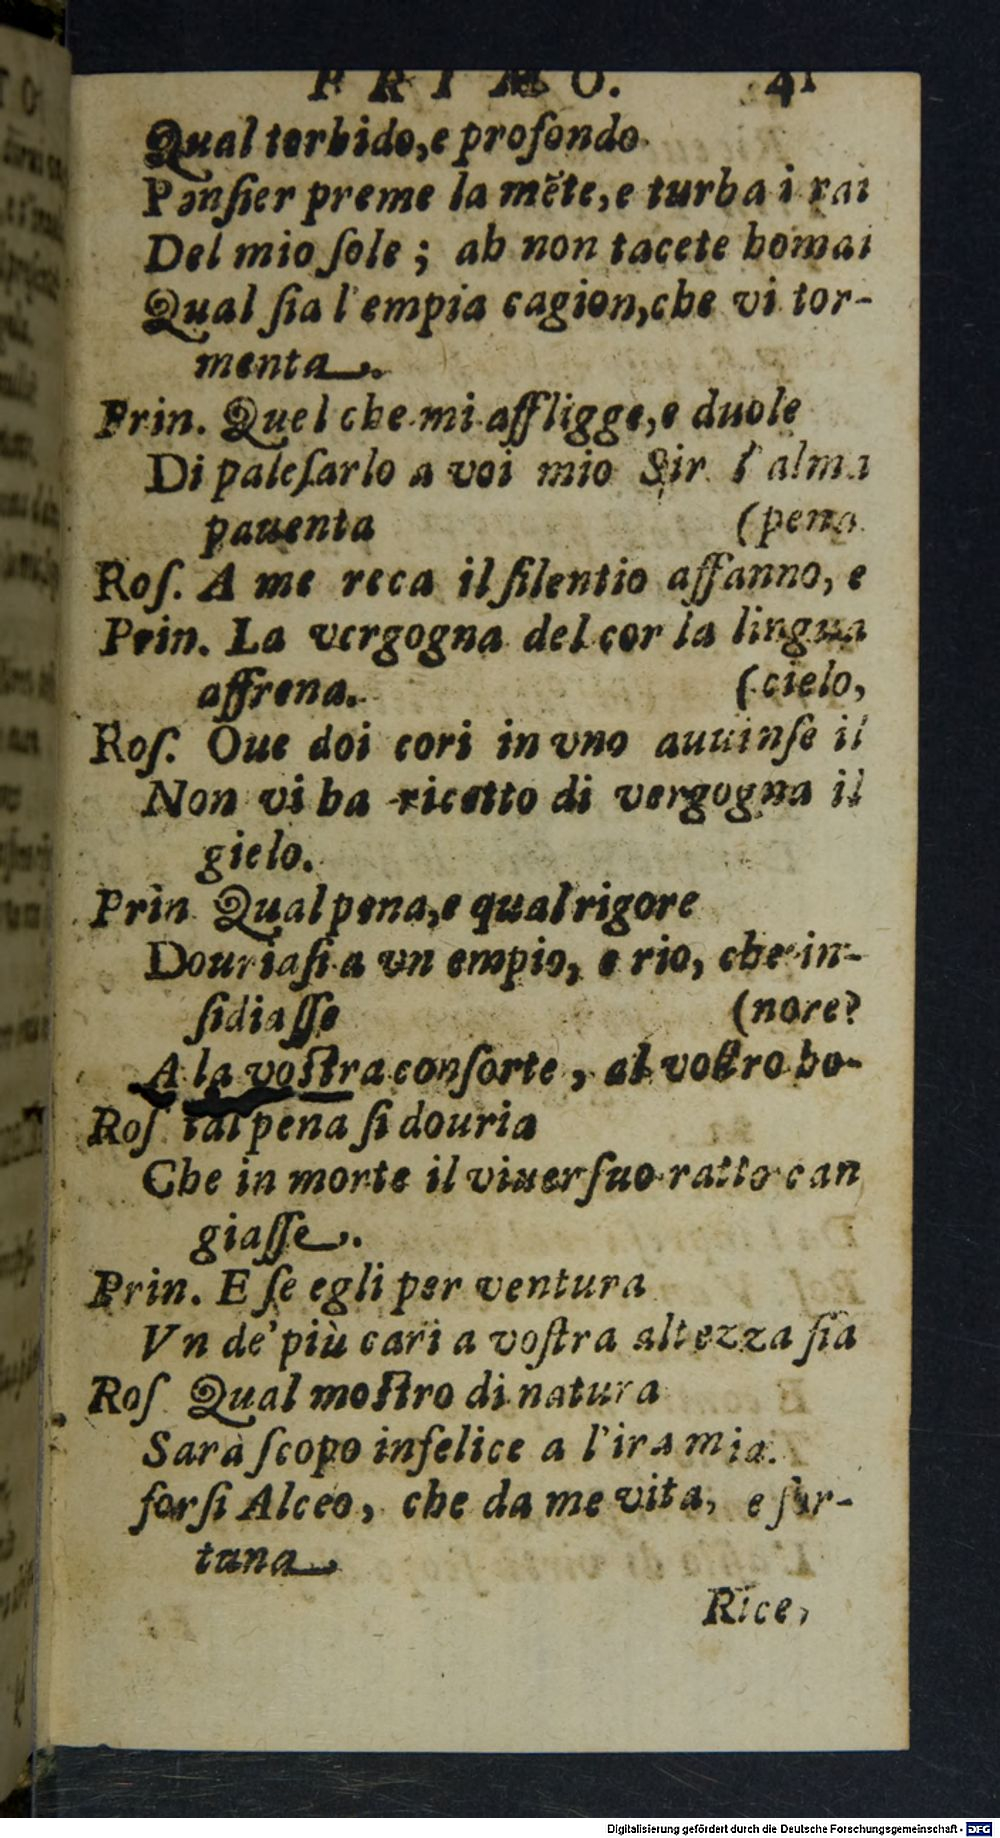 PRIMO. 41
Qual torbido, e profondo
Pensier preme la mẽte, e turba i rai
Del mio ſole; ah non tacete homai
Qual ſia l'empia cagion, che vi tor-
menta.
Prin. Quel che mi affligge, e duole
Di paleſarlo a voi mio Sir l'alma
pauenta (pena
Roſ. A me reca il ſilentio affanno, e
Prin. La vergogna del cor la lingua
affrena. (cielo,
Roſ. Oue doi cori in vno auuinſe il
Non vi ha ricetto di vergogna il
gielo.
Prin Qual pena, e qual rigore
Douriaſi a vn empio, e rio, che in-
ſidiaſſe (nore?
A la voſtra conſorte, al voſtro ho-
Roſ tal pena ſi douria
Che in morte il viuer ſuo ratto can
giaſſe.
Prin. E ſe egli per ventura
Vn de' più cari a voſtra altezza ſia
Roſ Qual moſtro di natura
Sarà ſcopo infelice a l'ira mia.
forſi Alceo, che da me vita, e for-
tuna
Rice,
Digitalisierung gefördert durch die Deutsche Forschungsgemeinschaft - DFG